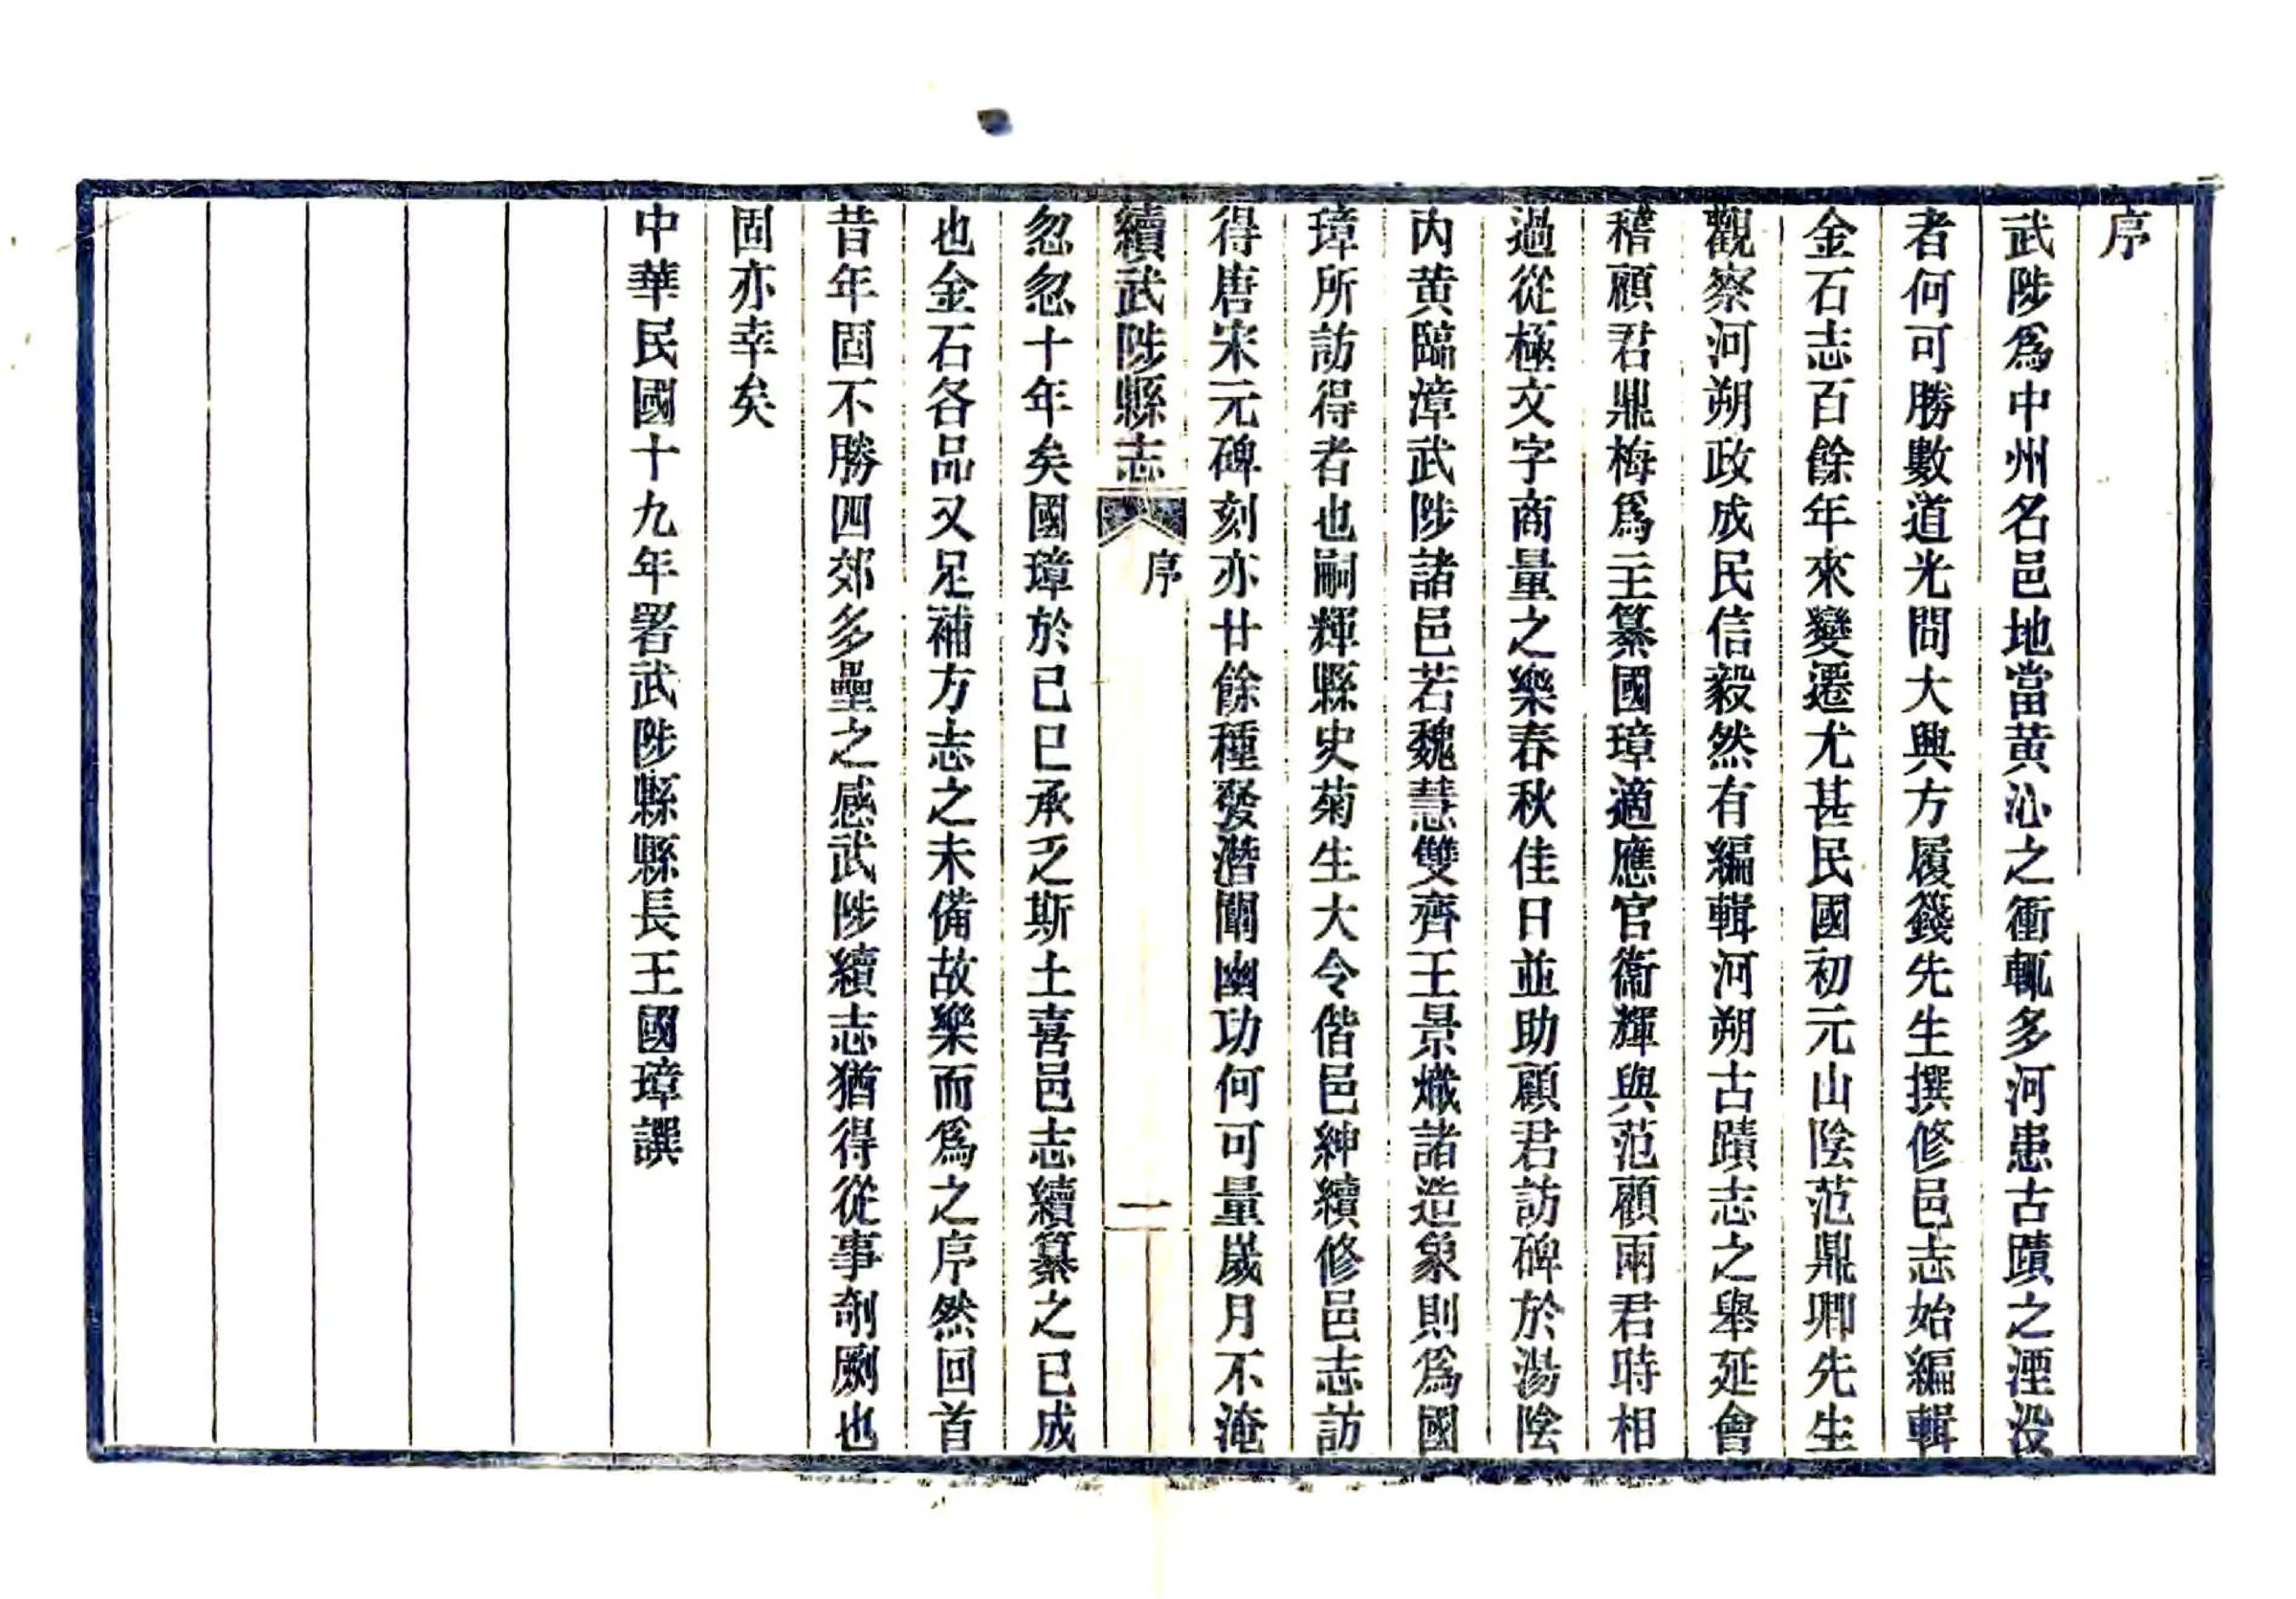 序
武陟爲中州名邑地當黃沁之衝輒多河患古蹟之湮没
者何可勝數道光間大興方履籛先生撰修邑志始編輯
金石志百餘年來變遷尤甚民國初元山陰范鼎卿先生
觀察河朔政成民信毅然有編輯河朔古蹟志之舉延會
稽顧君鼎梅爲主纂國璋適應官衞輝與范顧兩君時相
過從極文字商量之樂春秋佳日並助顧君訪碑於湯陰
內黃臨漳武陟諸邑若魏慧雙齊王景熾諸造象則爲國
璋所訪得者也嗣輝縣史菊生大令偕邑紳續修邑志訪
得唐宋元碑刻亦廿餘種發潛闡幽功何可量歲月不淹
續武陟縣志
序
一
忽忽十年矣國璋於己巳承乏斯土喜邑志續纂之已成
也金石各品又足補方志之未備故樂而爲之序然回首
昔年固不勝四郊多壘之感武陟續志猶得從事剞劂也
固亦幸矣
中華民國十九年署武陟縣縣長王國璋譔